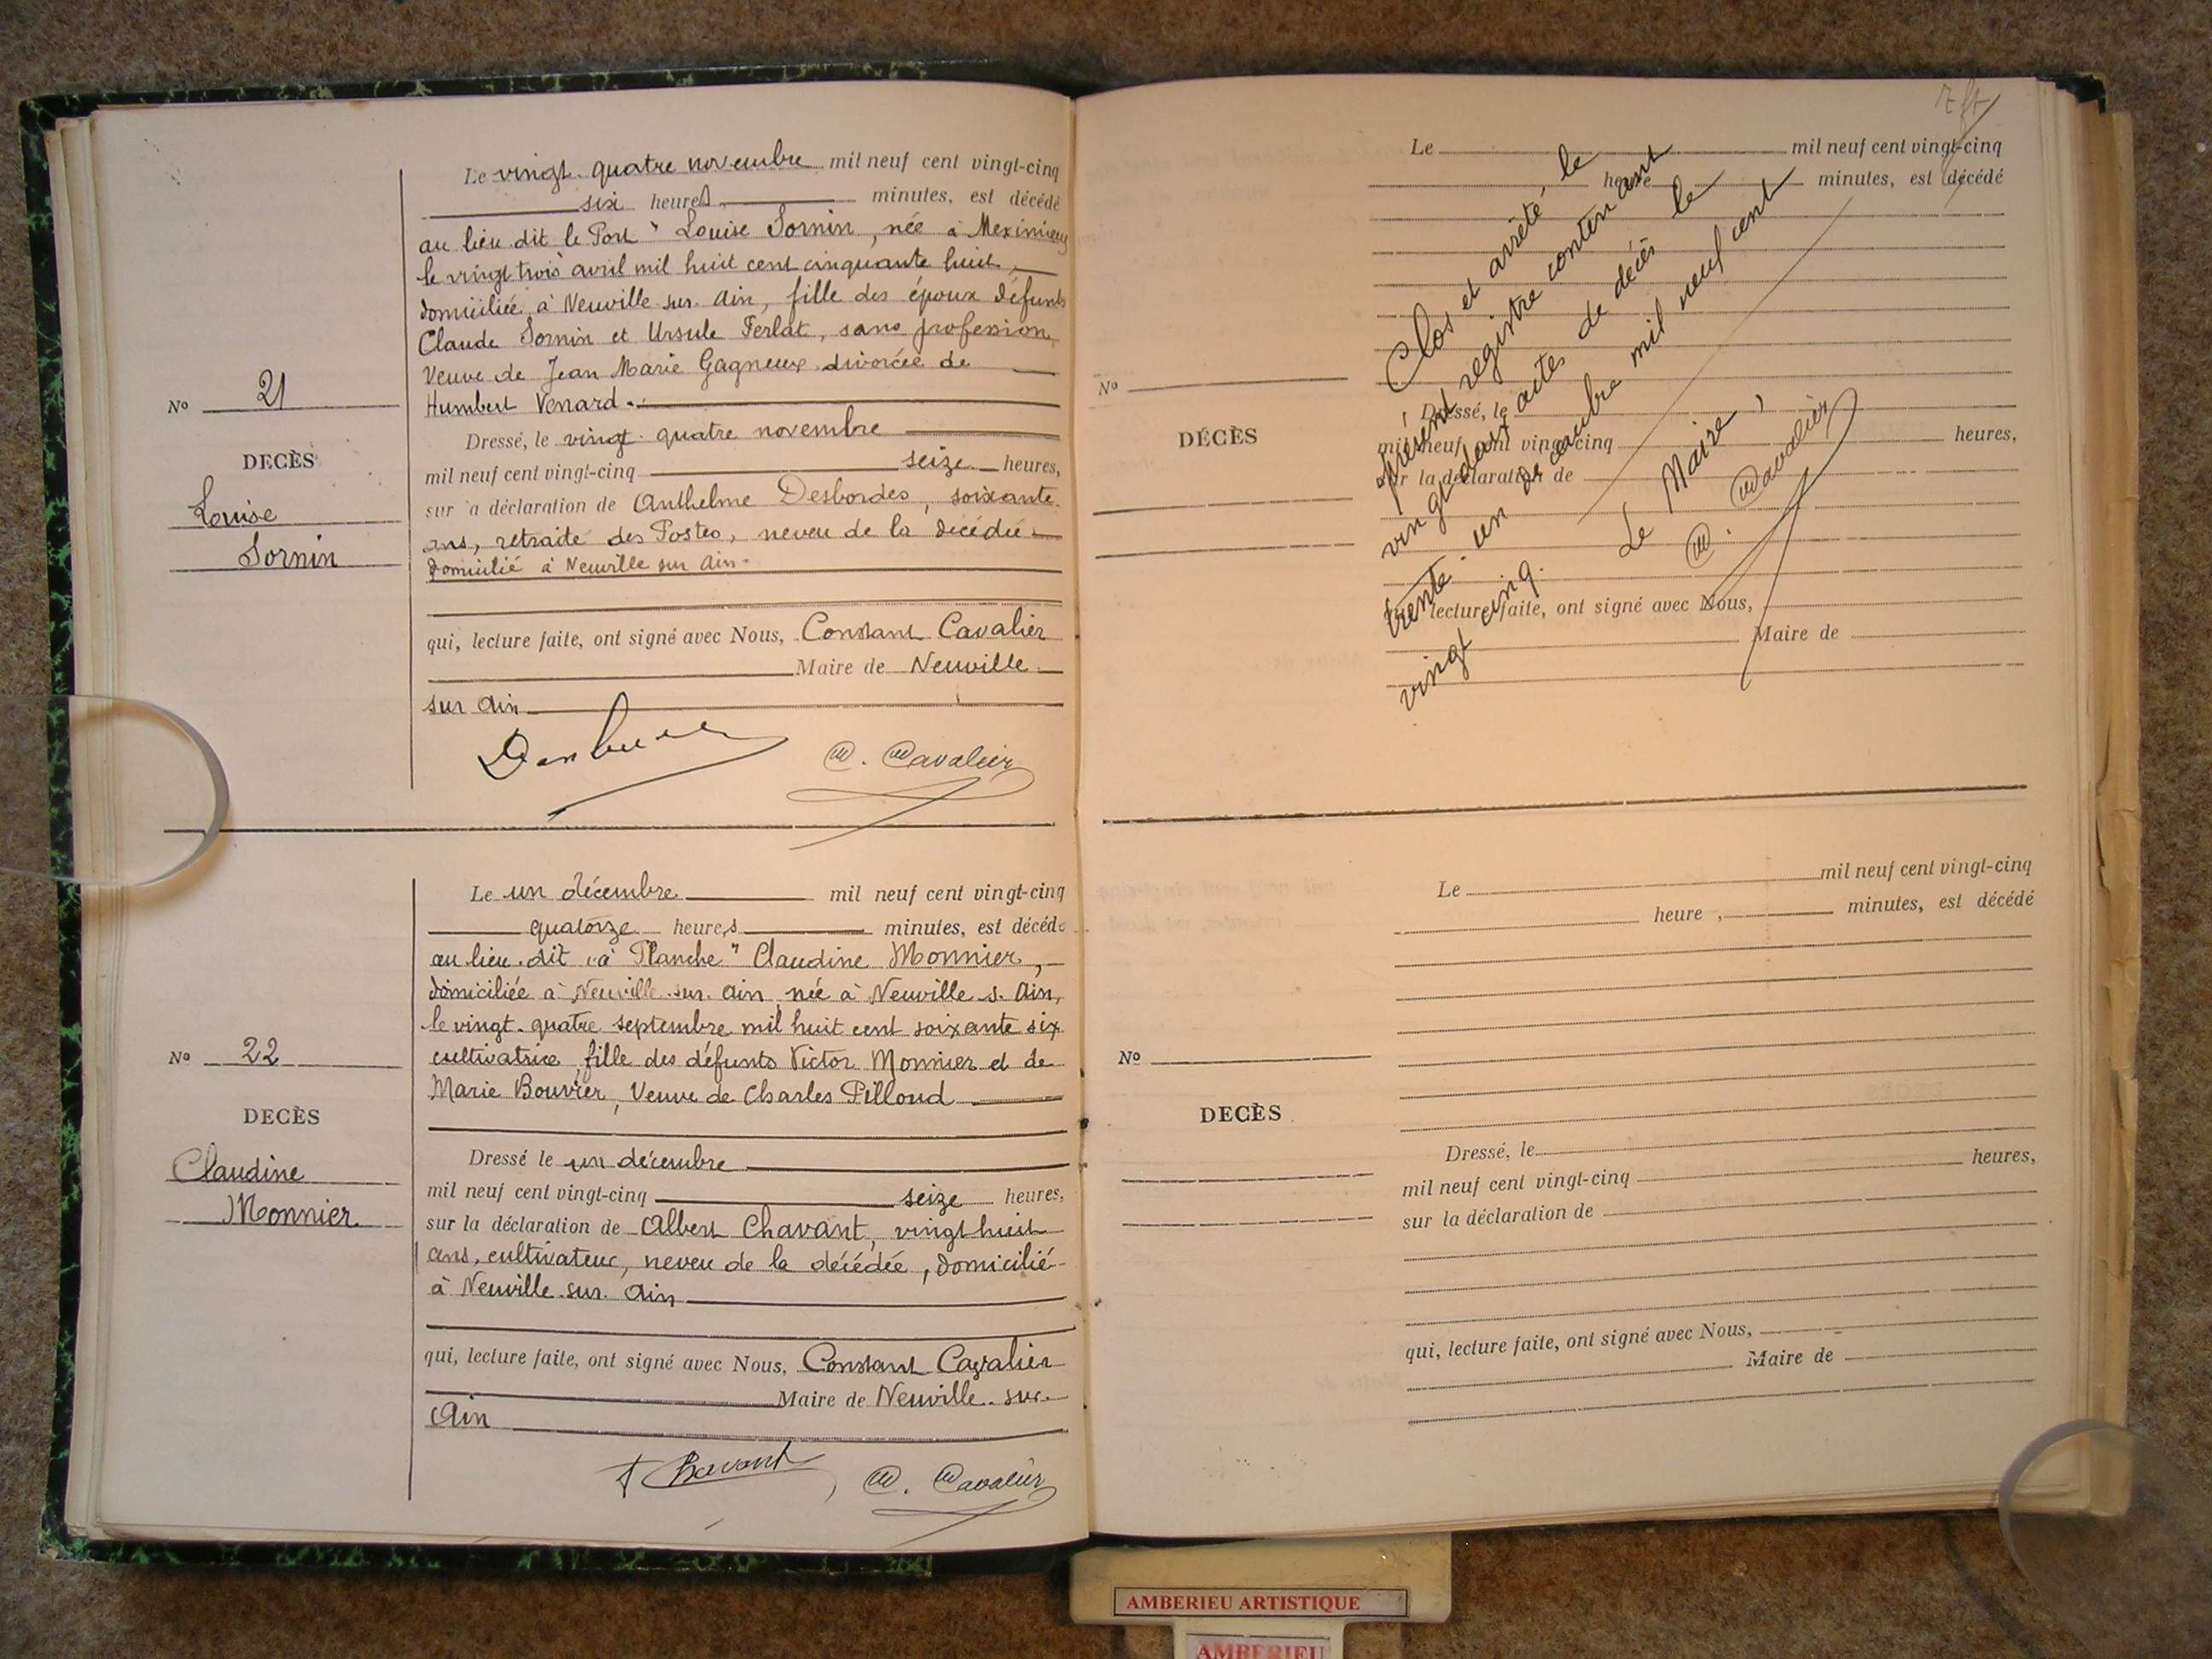 Le vingt-quatre novembre mil neuf cent vingt-cinq
six heures minutes, est décédé
au lieu dit le Port" Louise Sornin, née à Meximieux
le vingt trois avril mil huit cent cinquante huit,
domiciliée à Neuville sur Ain, fille des époux défunts
Claude Sornin et Ursule Ferlat, sans profession,
Veuve de Jean Marie Gagneux divorcée de
Humbert Venard.
No 21
DECÈS
Louise
Sornin
Dressé, le vingt-quatre novembre
mil neuf cent vingt-cinq seize heures,
sur a déclaration de Anthelme Desbordes, soixante
ans, retraité des Postes, neveu de la décédée
domicilié à Neuville sur Ain-
qui, lecture faite, ont signé avec Nous, Constant Cavalier
Maire de Neuville
sur Ain
C. Cavalier
Le un décembre mil neuf cent vingt-cinq
quatorze heures minutes, est décédé
au lieu-dit "à Planche" Claudine Monnier,
domiciliée à Neuville-sur-Ain née à Neuville s. Ain,
le vingt-quatre septembre mil huit cent soixante six
cultivatrice, fille des défunts Victor Monnier et de
Marie Bouvier, Veuve de Charles Pilloud
No 22
DECÈS
Claudine
Monnier
Dressé le un décembre
mil neuf cent vingt-cinq seize heures,
sur la déclaration de Albert Chavant, vingt huit
ans, cultivateur, neveu de la décédée, domicilié
à Neuville-sur-Ain
qui, lecture faite, ont signé avec Nous, Constant Cavalier
Maire de Neuville-sur-
Ain
Chavant
C. Cavalier
Le mil neuf cent vingt-cinq
heure minutes, est décédé
No
DÉCÈS
Dressé, le
mil neuf cent vingt-cinq heures,
sur la déclaration de
qui, lecture faite, ont signé avec Nous,
Maire de
Clos et arrêté le
présent registre contenant
vingt deux actes de décès le
trente-un décembre mil neuf cent
vingt cinq.
Le Maire,
C. Cavalier
Le mil neuf cent vingt-cinq
heure , minutes, est décédé
No
DECÈS
Dressé, le
mil neuf cent vingt-cinq heures,
sur la déclaration de
qui, lecture faite, ont signé avec Nous,
Maire de
AMBERIEU ARTISTIQUE
AMBERIEU